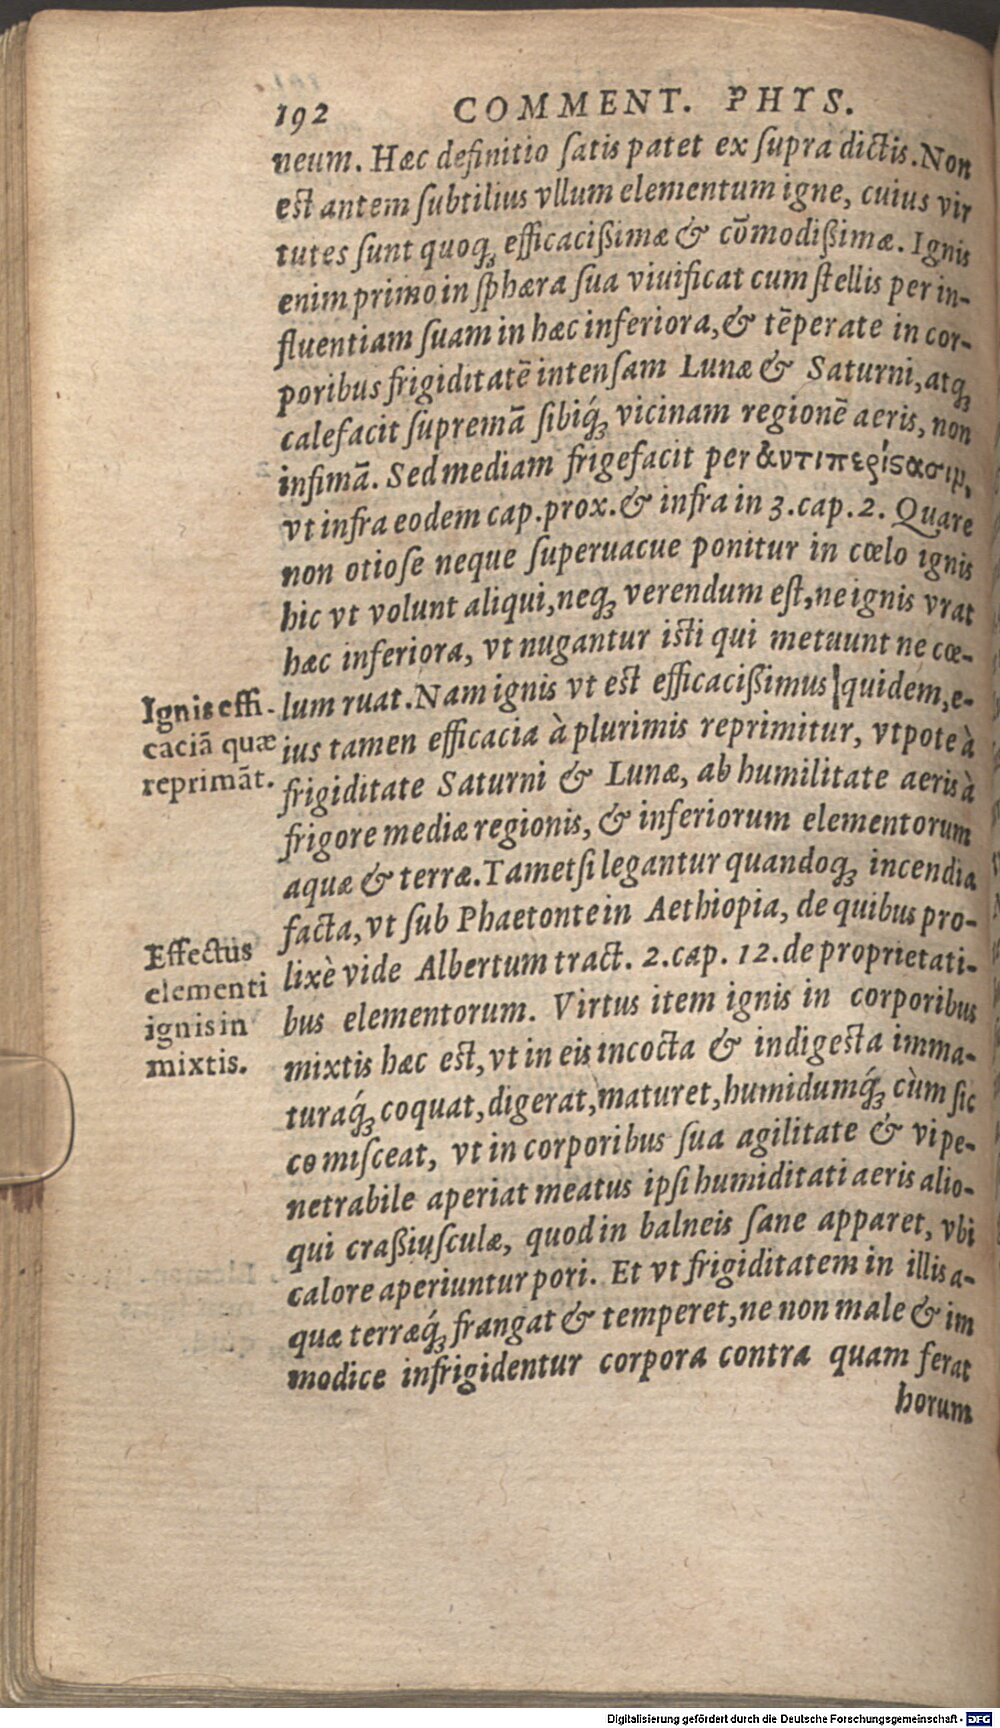 192 COMMENT. PHYS.
neum. Hæc definitio ſatis patet ex ſupra dictis. Non
est antem ſubtilius vllum elementum igne, cuius vir
tutes ſunt quoq; efficacißimæ & cōmodißimæ. Ignis
enim primo in ſphæra ſua viuificat cum ſtellis per in-
fluentiam ſuam in hæc inferiora, & tēperate in cor-
poribus frigiditatē intenſam Lunæ & Saturni, atq;
calefacit ſupremā ſibiq́; vicinam regionē aeris, non
infimā. Sed mediam frigefacit per ἀντιπερίϛασιμ,
vt infra eodem cap. prox. & infra in 3. cap. 2. Quare
non otioſe neque ſuperuacue ponitur in cœlo ignis
hic vt volunt aliqui, neq; verendum eſt, ne ignis vrat
hæc inferiora, vt nugantur isti qui metuunt ne cœ-
Ignis effi- lum ruat. Nam ignis vt est efficacißimus quidem, e-
caciā quæ ius tamen efficacia à plurimis reprimitur, vtpote à
reprimāt. frigiditate Saturni & Lunæ, ab humilitate aeris à
frigore mediæ regionis, & inferiorum elementorum
aquæ & terræ. Tametſi legantur quandoq; incendia
facta, vt ſub Phaetonte in Aethiopia, de quibus pro-
Effectus lixè vide Albertum tract. 2. cap. 12. de proprietati-
elementi bus elementorum. Virtus item ignis in corporibus
ignis in mixtis hæc est, vt in eis incocta & indigesta imma-
mixtis. turaq́; coquat, digerat, maturet, humidumq́; cùm ſic
comiſceat, vt in corporibus ſua agilitate & vi pe-
netrabile aperiat meatus ipſi humiditati aeris alio-
qui craßiuſculæ, quod in balneis ſane apparet, vbi
calore aperiuntur pori. Et vt frigiditatem in illis a-
quæ terræq́; frangat & temperet, ne non male & im
modice infrigidentur corpora contra quam ferat
horum
Digitalisierung gefördert durch die Deutsche Forschungsgemeinschaft - DFG